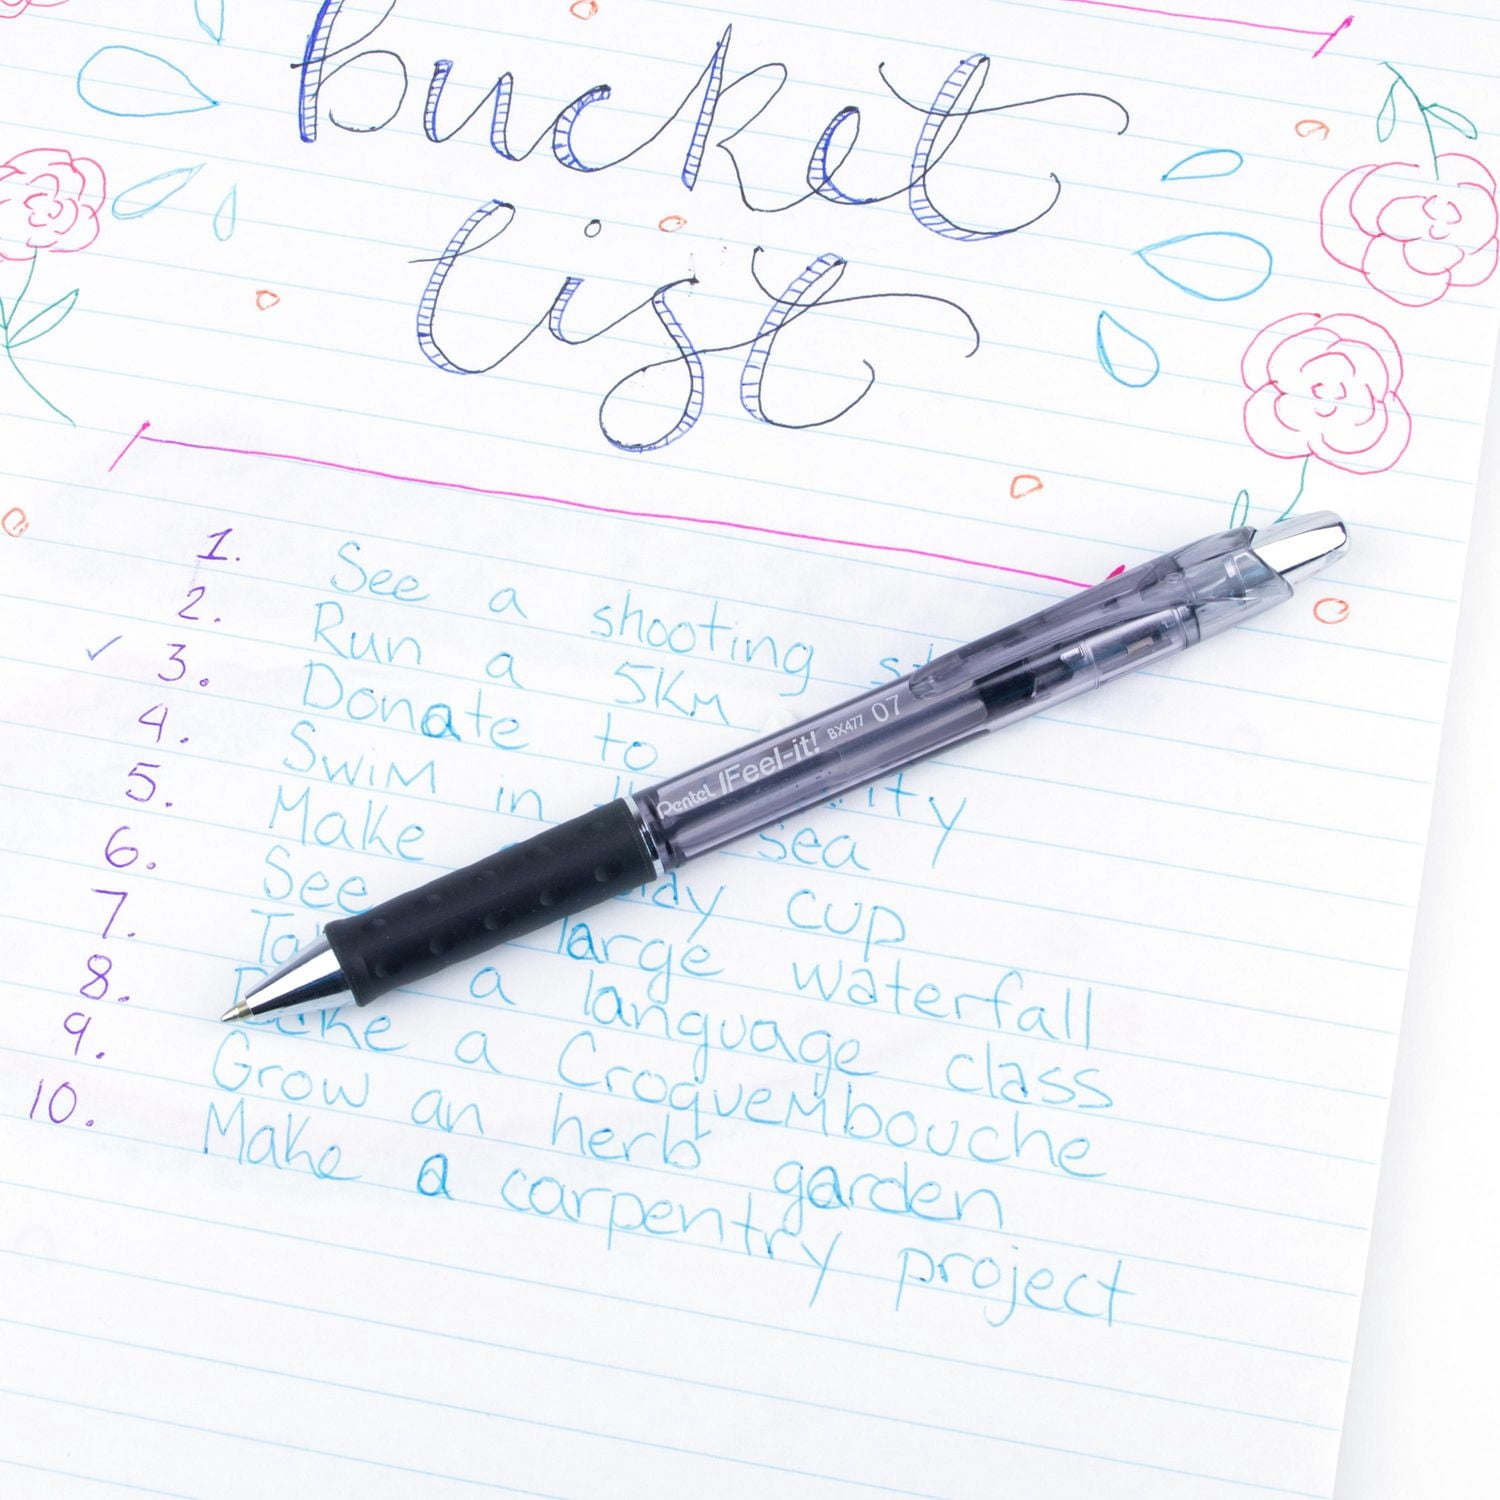 bucket
list
1. See a shooting
2. Run a 5KM
✓ 3. Donate to
4. Swim in sea
5. Make cup
6. See large waterfall
7. a language class
8. a Croquembouche
9. Grow an herb garden
10. Make a carpentry project
Pentel Feel-it! BX477 07